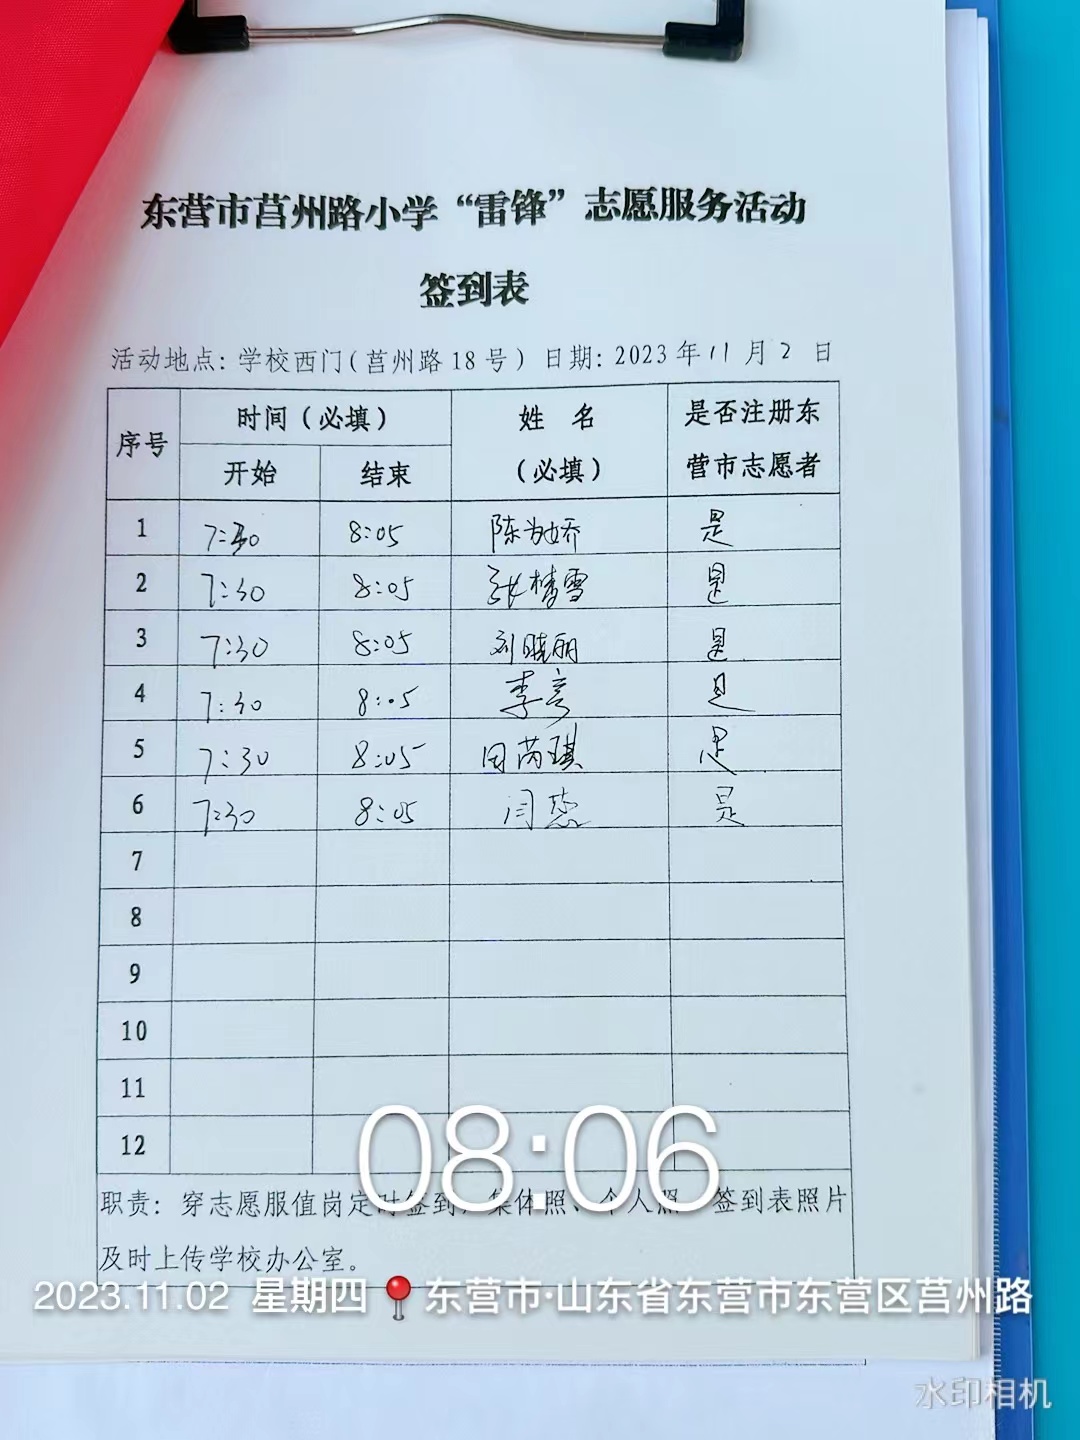 东营市莒州路小学“雷锋”志愿服务活动
签到表
活动地点: 学校西门(莒州路18号) 日期: 2023年11月2日
序号 时间(必填) 姓名(必填) 是否注册东营市志愿者
开始 结束
1 7:30 8:05 陈为娇 是
2 7:30 8:05 张梦雪 是
3 7:30 8:05 刘晓丽 是
4 7:30 8:05 李彦 是
5 7:30 8:05 田芮琪 是
6 7:30 8:05 闫 是
7
8
9
10
11
12
08:06
职责: 穿志愿服值岗定时签到, 集体照、个人照、签到表照片
及时上传学校办公室。
2023.11.02 星期四 东营市·山东省东营市东营区莒州路
水印相机